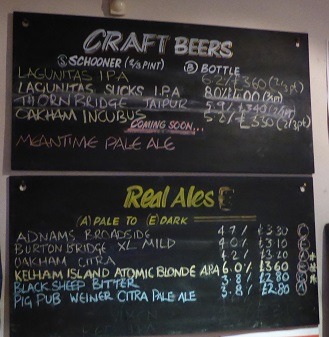 CRAFT BEERS
Ⓢ SCHOONER (2/3 PINT) Ⓑ BOTTLE
LAGUNITAS I.P.A 6.2% £3.60 (2/3pt)
LAGUNITAS SUCKS I.P.A 8.0%
THORNBRIDGE JAIPUR 5.9% £3.40
OAKHAM INCUBUS 5.2% £3.30 (2/3pt)
COMING SOON...
MEANTIME PALE ALE
Real Ales
(A) PALE TO (E) DARK
ADNAMS BROADSIDE 4.7% £3.30
BURTON BRIDGE XL MILD 4.0% £3.10
OAKHAM CITRA 4.2% £3.20
KELHAM ISLAND ATOMIC BLONDE APA 6.0% £3.60
BLACK SHEEP BITTER 3.8% £2.80
PIG PUB WEINER CITRA PALE ALE 3.8% £2.80